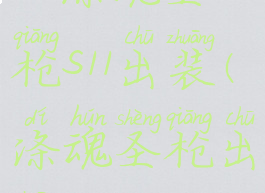 滌魂圣
qiāng chū zhuāng
枪S11出装(
dí hún shèng qiāng chū
涤魂圣枪出